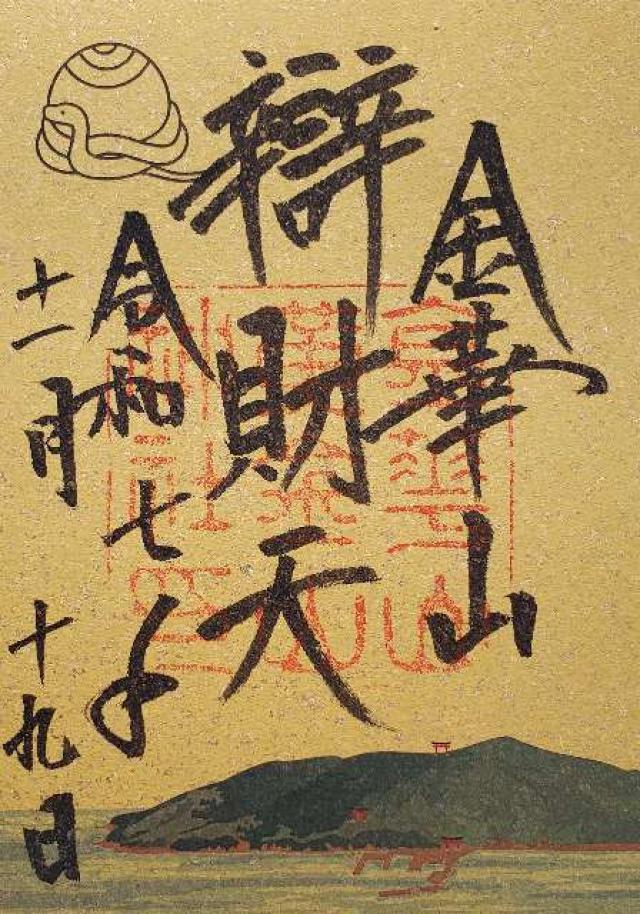 金華山
辯財天
令和七年
十一月十九日